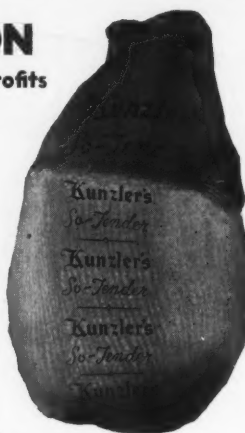 ON
rofits
Kunzler
So-Tene
Kunzler's
So-Tender
Kunzler's
So-Tender
Kunzler's
So-Tender
Kunzler's